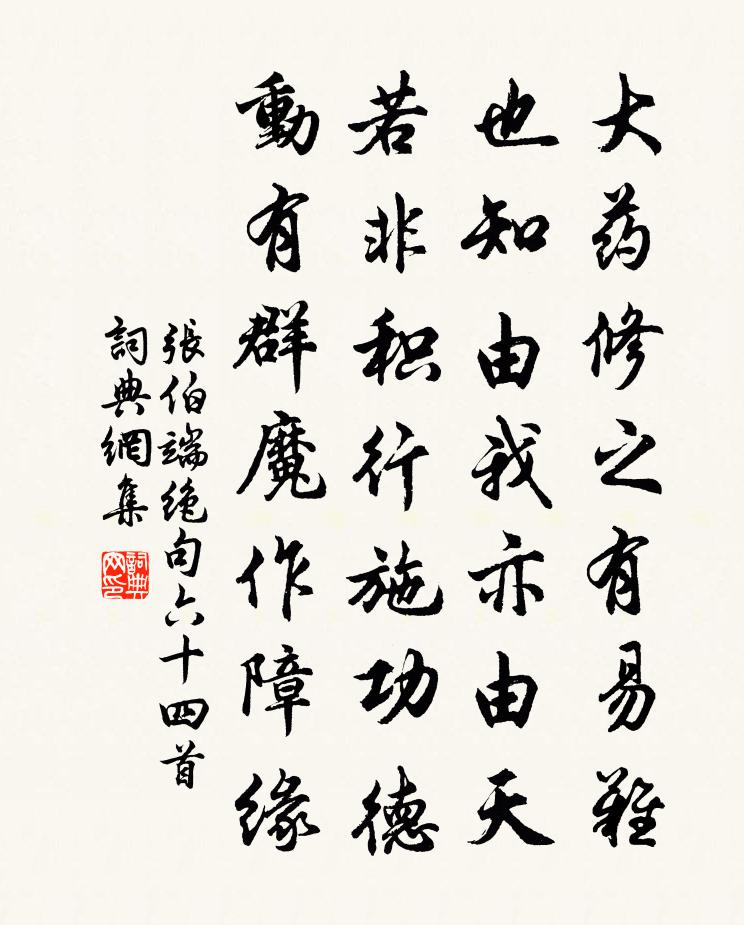 大药修之有易難
也知由我亦由天
若非积行施功德
動有群魔作障緣
張伯端绝句六十四首
詞典網集
詞典网印